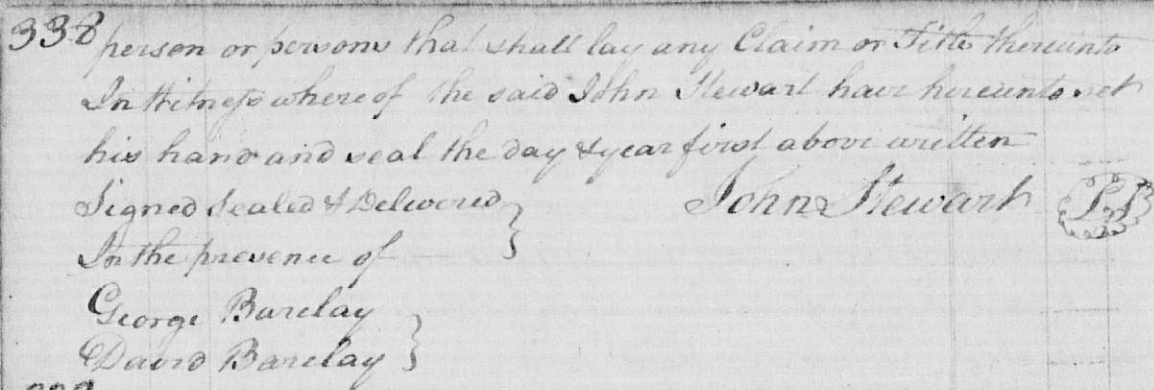 338 person or persons that shall lay any Claim or Title thereunto
In Witness where of the said John Stewart have hereunto set
his hand and seal the day & year first above written
Signed Sealed & Delivered
John Stewart
In the presence of
George Barclay
David Barclay